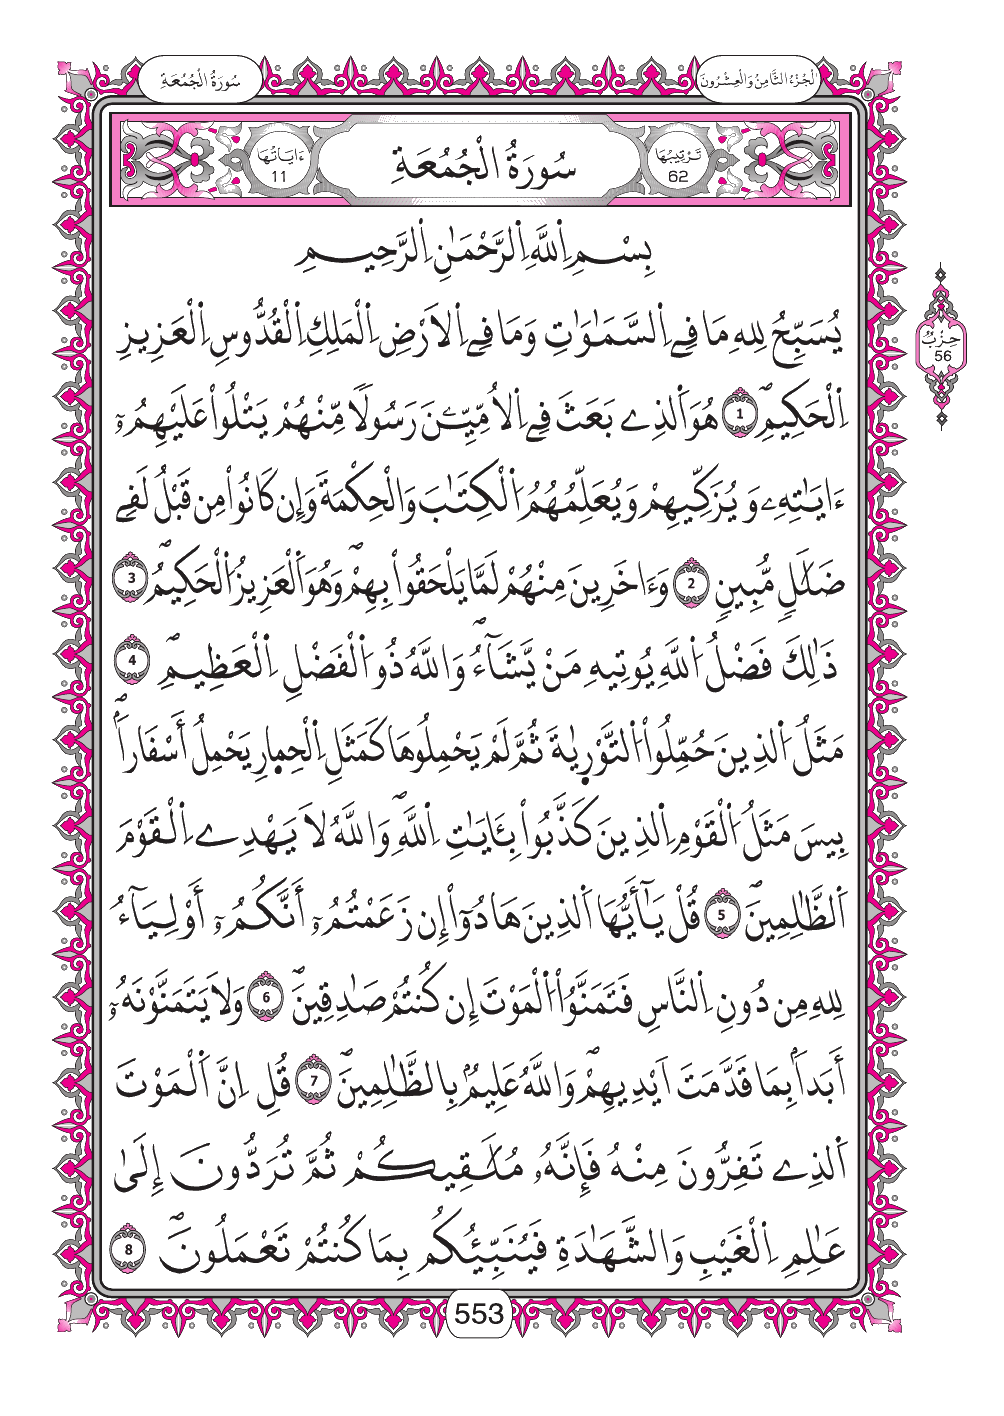 الْجُزْءُ الثَّامِنُ وَالْعِشْرُونَ
سُورَةُ الْجُمُعَةِ
تَرْتِيبُهَا 62
سُورَةُ الْجُمُعَةِ
ءَايَاتُهَا 11
بِسْمِ اِ۬للَّهِ اِ۬لرَّحْمَٰنِ اِ۬لرَّحِيمِ
يُسَبِّحُ لِلهِ مَا فِے اِ۬لسَّمَٰوَٰتِ وَمَا فِے اِ۬لَارْضِ اِ۬لْمَلِكِ اِ۬لْقُدُّوسِ اِ۬لْعَزِيزِ
حِزْبُ 56
اِ۬لْحَكِيمِۖ 1 هُوَ اَ۬لذِے بَعَثَ فِے اِ۬لُامِّيِّـۧنَ رَسُولاٗ مِّنْهُمْ يَتْلُواْ عَلَيْهِمُۥٓ
ءَايَٰتِهِۦ وَيُزَكِّيهِمْ وَيُعَلِّمُهُمُ اُ۬لْكِتَٰبَ وَالْحِكْمَةَ وَإِن كَانُواْ مِن قَبْلُ لَفِے
ضَلَٰلٖ مُّبِينٖ 2 وَءَاخَرِينَ مِنْهُمْ لَمَّا يَلْحَقُواْ بِهِمْۖ وَهُوَ اَ۬لْعَزِيزُ اُ۬لْحَكِيمُۖ 3
ذَٰلِكَ فَضْلُ اُ۬للَّهِ يُوتِيهِ مَنْ يَّشَآءُۖ وَاللَّهُ ذُو اُ۬لْفَضْلِ اِ۬لْعَظِيمِۖ 4
مَثَلُ اُ۬لذِينَ حُمِّلُواْ اُ۬لتَّوْر۪يٰةَ ثُمَّ لَمْ يَحْمِلُوهَا كَمَثَلِ اِ۬لْحِم۪ارِ يَحْمِلُ أَسْفَاراَۢۖ
بِيسَ مَثَلُ اُ۬لْقَوْمِ اِ۬لذِينَ كَذَّبُواْ بِـَٔايَٰتِ اِ۬للَّهِۖ وَاللَّهُ لَا يَهْدِے اِ۬لْقَوْمَ
اَ۬لظَّٰلِمِينَۖ 5 قُلْ يَٰٓأَيُّهَا اَ۬لذِينَ هَادُوٓاْ إِن زَعَمْتُمُۥٓ أَنَّكُمُۥٓ أَوْلِيَآءُ
لِلهِ مِن دُونِ اِ۬لنَّاسِ فَتَمَنَّوُاْ اُ۬لْمَوْتَ إِن كُنتُمْ صَٰدِقِينَۖ 6 وَلَا يَتَمَنَّوْنَهُۥٓ
أَبَداَۢ بِمَا قَدَّمَتَ اَيْدِيهِمْۖ وَاللَّهُ عَلِيمُۢ بِالظَّٰلِمِينَۖ 7 قُلِ اِنَّ اَ۬لْمَوْتَ
اَ۬لذِے تَفِرُّونَ مِنْهُ فَإِنَّهُۥ مُلَٰقِيكُمْ ثُمَّ تُرَدُّونَ إِلَىٰ
عَٰلِمِ اِ۬لْغَيْبِ وَالشَّهَٰدَةِ فَيُنَبِّئُكُم بِمَا كُنتُمْ تَعْمَلُونَۖ 8
553